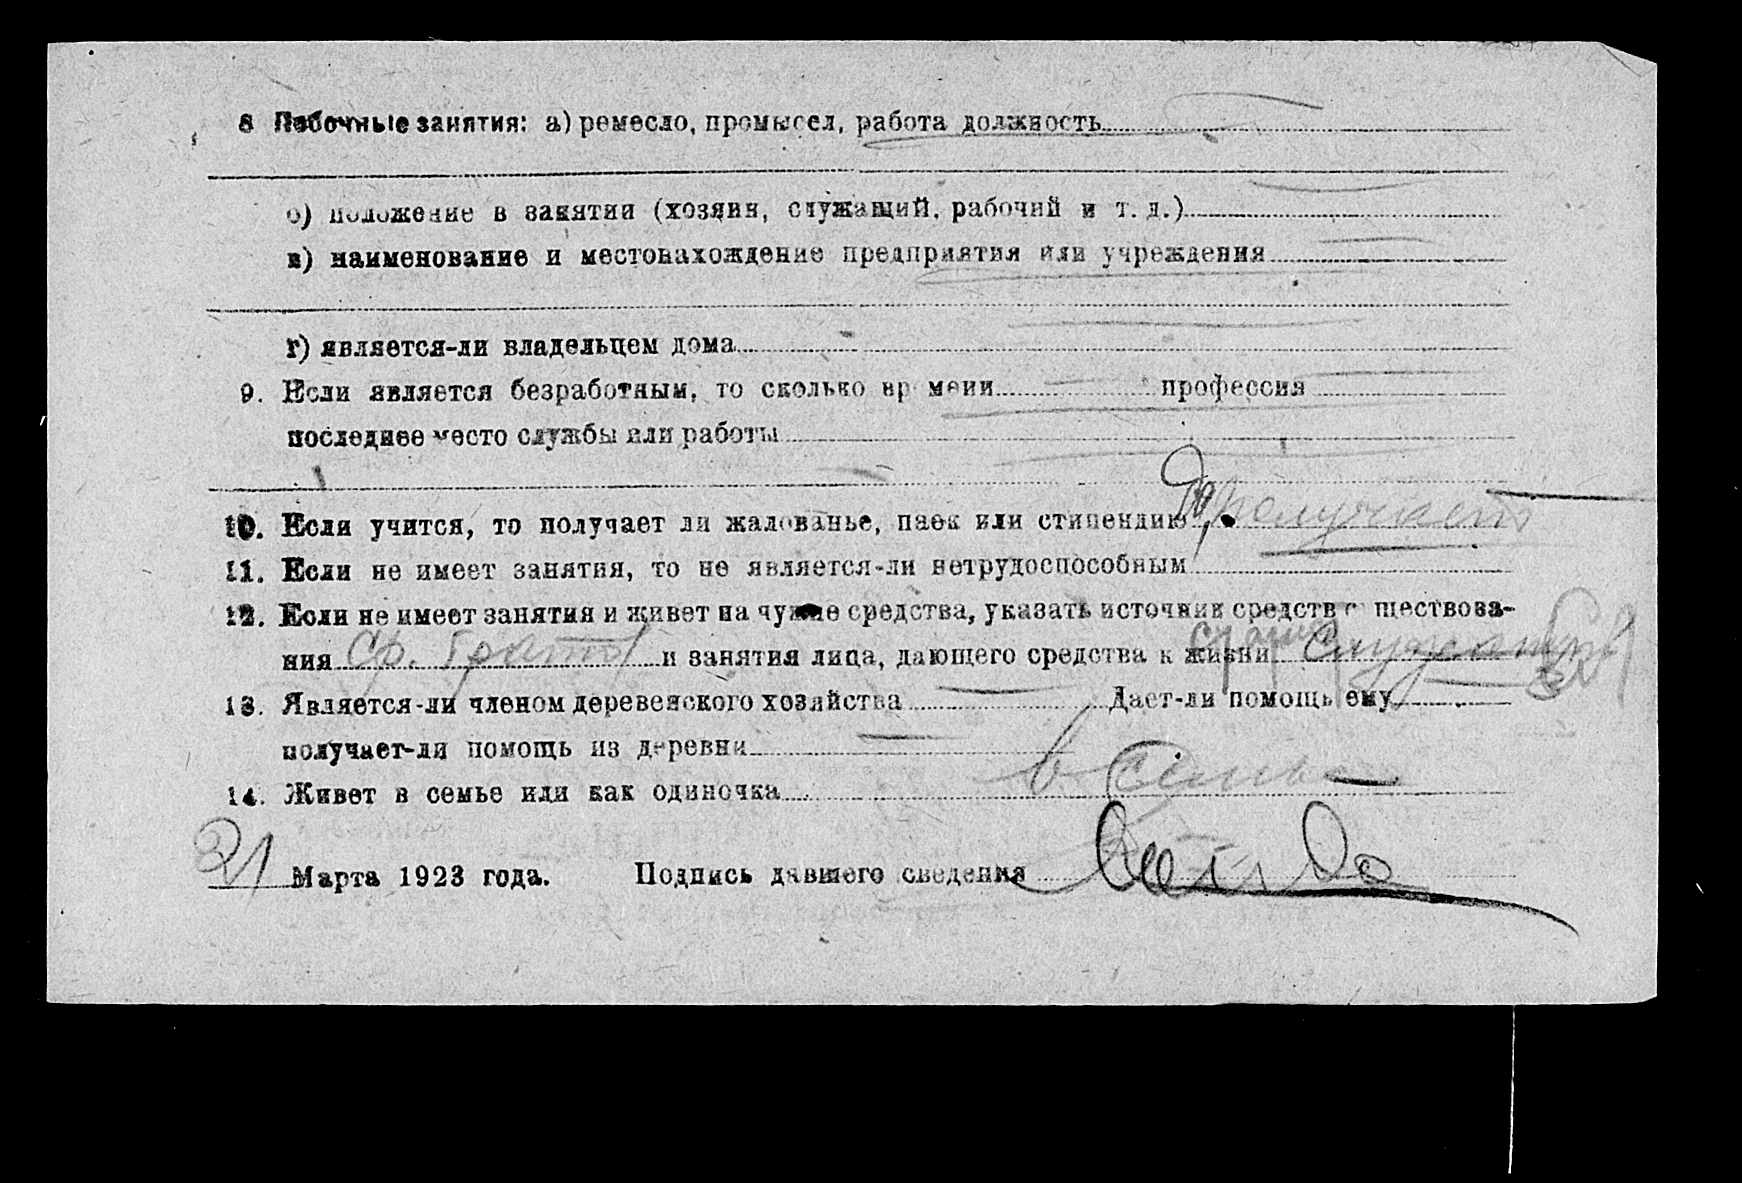 8 Побочные занятия: а) ремесло, промысел, работа должность
б) положение в занятии (хозяин, служащий, рабочий и т. д.)
в) наименование и местонахождение предприятия или учреждения
г) является-ли владельцем дома
9. Если является безработным, то сколько времени профессия
последнее место службы или работы
10. Если учится, то получает ли жалованье, паек или стипендию получает
11. Если не имеет занятия, то не является-ли нетрудоспособным
12. Если не имеет занятия и живет на чужие средства, указать источник средств существова-
ния и занятия лица, дающего средства к жизни
13. Является-ли членом деревенского хозяйства Дает-ли помощь ему
получает-ли помощь из деревни
14. Живет в семье или как одиночка в
21 Марта 1923 года. Подпись давшего сведения